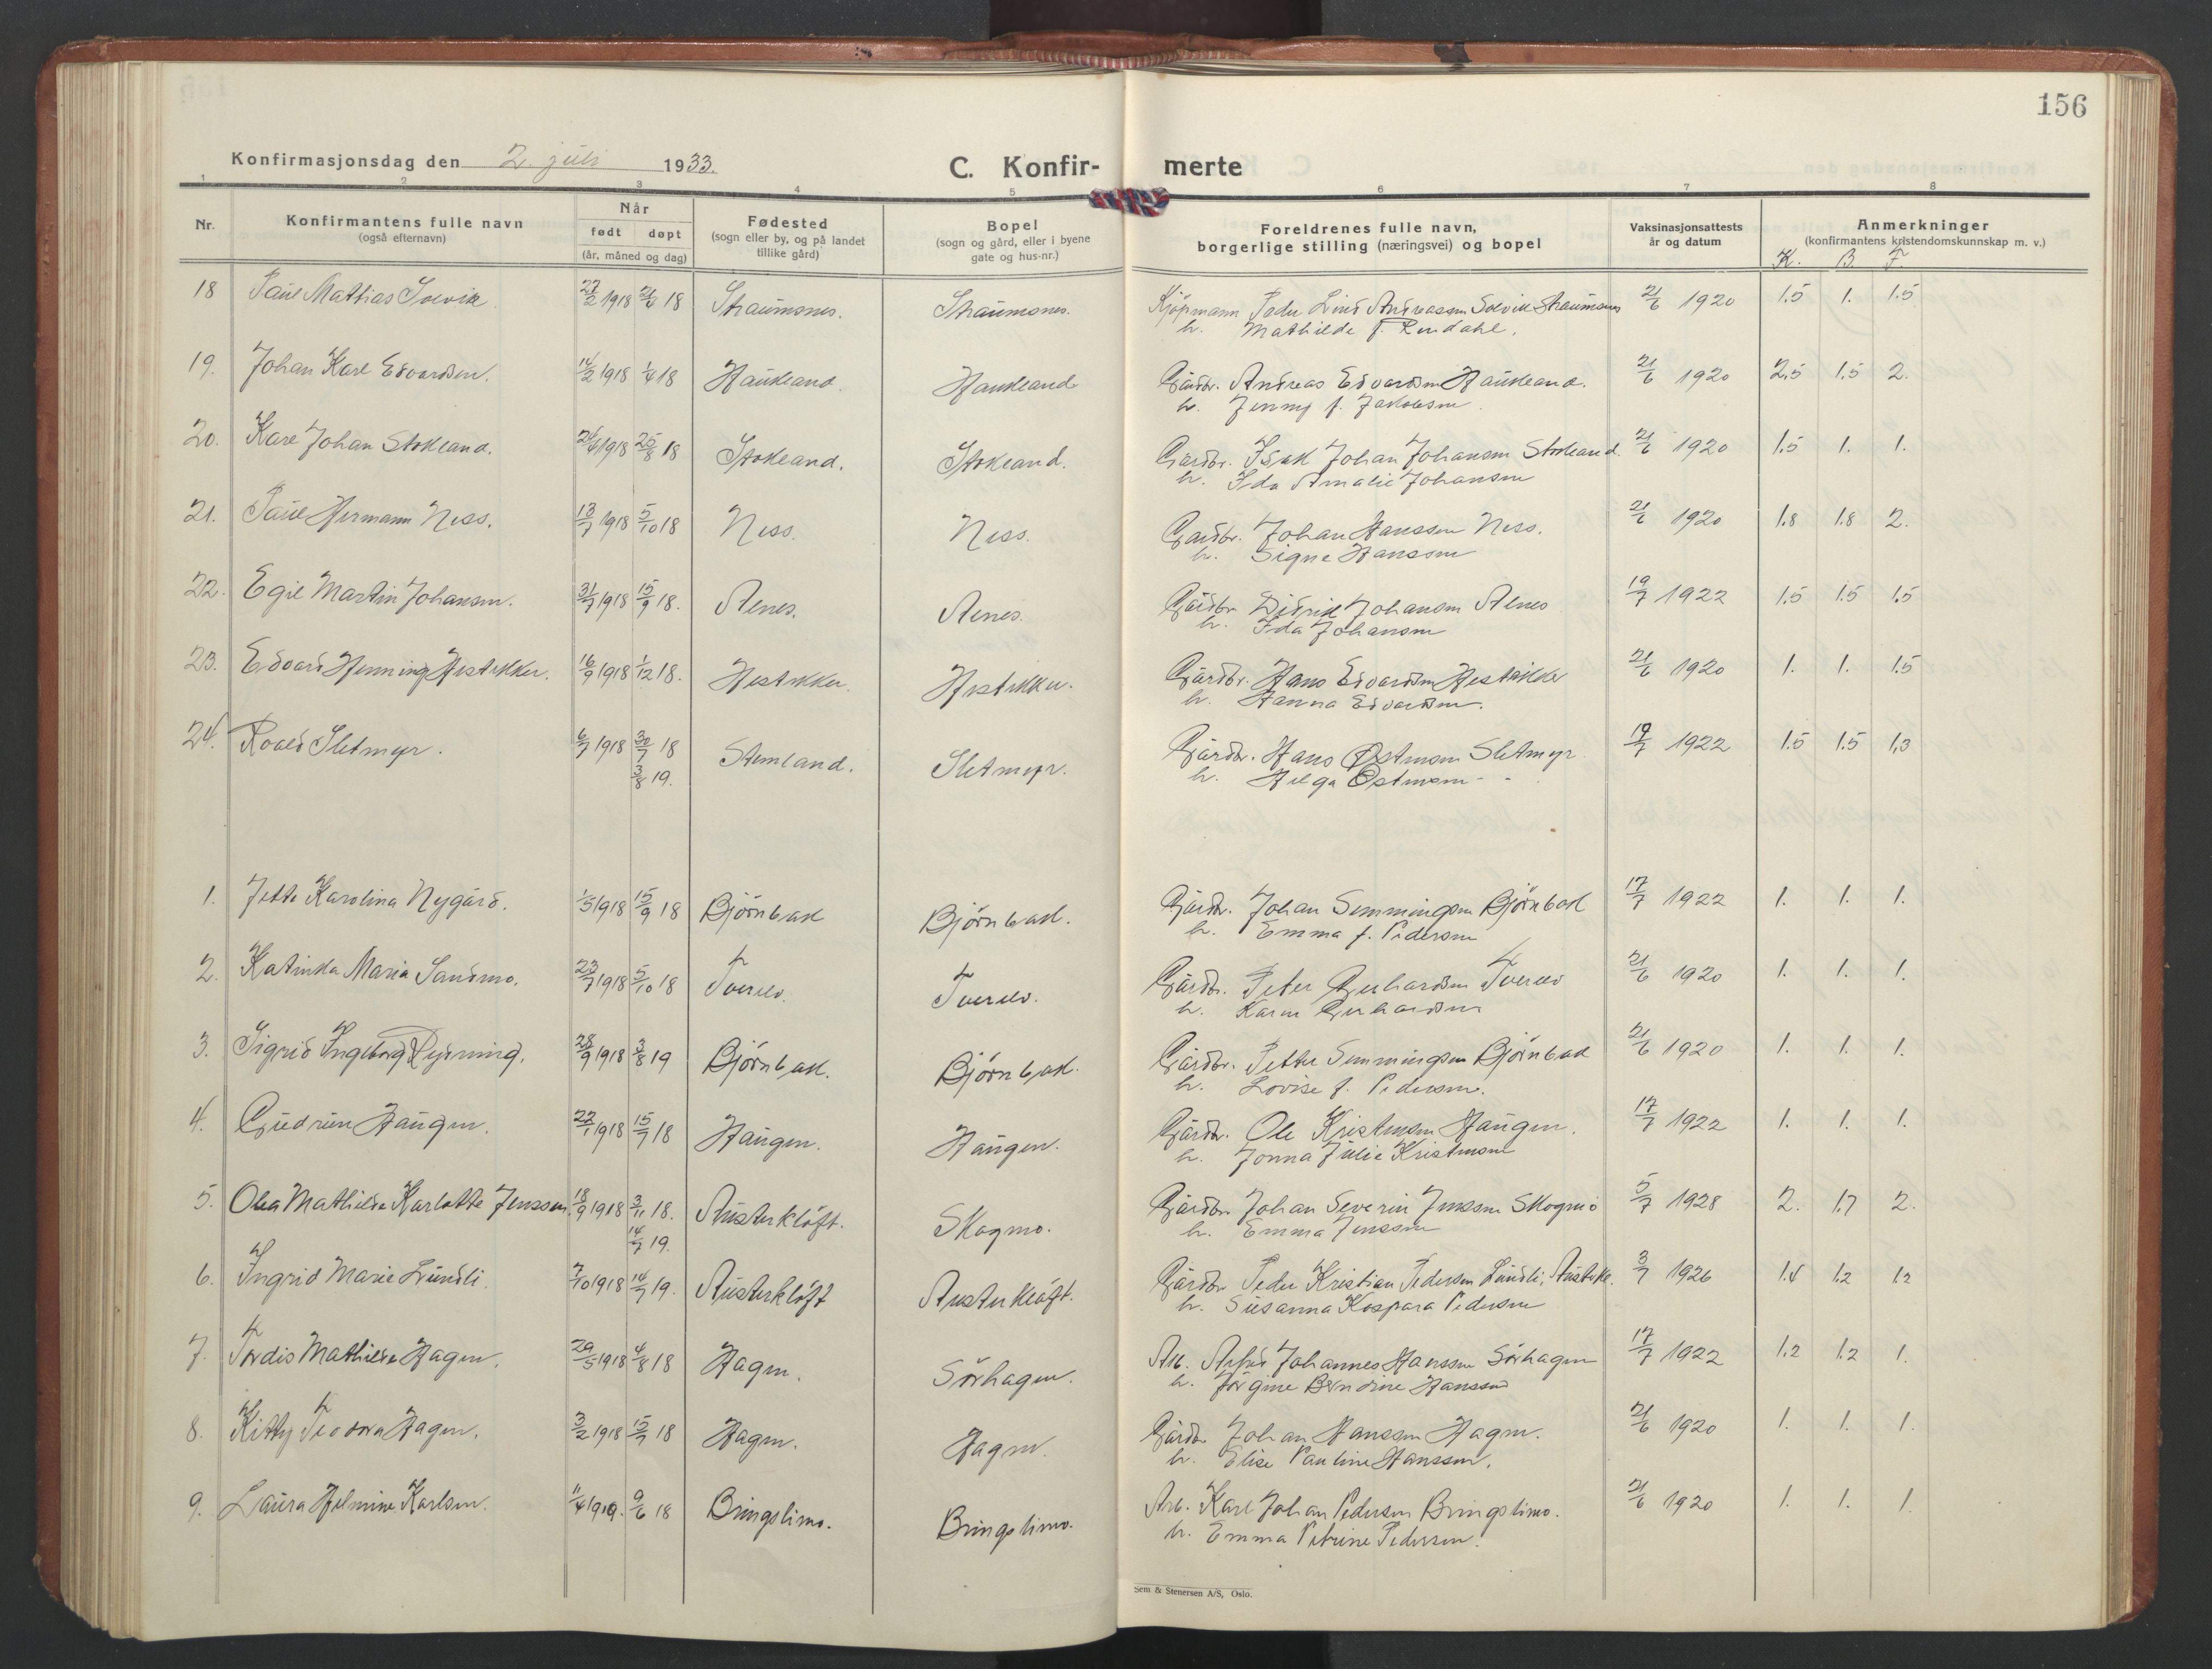 156
Konfirmasjonsdag den 2. juli 1933.
C. Konfir- merte
1 2 3 4 5 6 7 8
Nr.
Konfirmantens fulle navn
(også efternavn)
Når
født døpt
(år, måned og dag)
Fødested
(sogn eller by, og på landet
tillike gård)
Bopel
(sogn og gård, eller i byene
gate og hus-nr.)
Foreldrenes fulle navn,
borgerlige stilling (næringsvei) og bopel
Vaksinasjonsattests
år og datum
Anmerkninger
(konfirmantens kristendomskunnskap m. v.)
K. B. F.
18 Paul Mathias Solvik. 27/2 1918 18 Straumsnes. Straumsnes. Kjöpmann Peder Lind Andreassen Solvik Straumsnes 21/6 1920 1.5 1. 1.5
h. Mathilde f. Rendahl.
19. Johan Karl Edvardsen. 14/2 1918 1/4 18 Haukland. Haukland Gårdbr. Andreas Edvardsen Haukland. 21/6 1920 2.5 1.5 2.
h. Jenny f. Jakobsen.
20. Karl Johan Stokland. 1918 25/8 18 Stokland. Stokland. Gårdbr. Isak Johan Johansen Stokland. 21/6 1920 1.5 1. 1.
h. Ida Amalie Johansen
21. Paul Hermann Ness. 13/7 1918 5/10 18 Ness. Ness. Gårdbr. Johan Hanssen Ness. 21/6 1920 1.8 1.8 2.
h. Signe Hanssen
22. Egil Martin Johansen. 31/7 1918 15/9 18. Alnes. Alnes. Gårdbr. Didrik Johansen Alnes 19/7 1922 1.5 1.5 1.5
h. Ida Johansen
23. Edvard Henning Hestikker. 16/9 1918 1/12 18. Hestikker. Hestikker. Gårdbr. Hans Edvardsen Hestikker 21/6 1920 1. 1. 1.5
h. Hanna Edvardsen.
24. Roald Sletmyr. 6/7 1918 30/7 18 Stemland. Sletmyr. Gårdbr. Hans Østensen Sletmyr. 19/7 1922 1.5 1.5 1.3
3/8 19.
h. Helga Østensen - -
1. Jette Karolina Nygård. 1/5 1918 15/9 18 Björnbak Björnbak. Gårdbr. Johan Semmingsen Björnbak 17/7 1922 1. 1. 1.
h. Emma f. Pedersen
2. Katinka Maria Sandmo. 23/7 1918 5/10 18 Tverelv. Tverelv. Gårdbr. Peter Gerhardsen Tverelv 21/6 1920 1. 1. 1.
h. Karen Gerhardsen
3. Sigrid Ingeborg Lysning. 28/9 1918 3/8 19 Björnbak. Björnbak. Gårdbr. Petter Semmingsen Björnbak 21/6 1920 1. 1. 1.
h. Lovise f. Pedersen.
4. Gudrun Haugen. 22/1 1918 15/7 18 Haugen. Haugen. Gårdbr. Ole Kristensen Haugen. 17/7 1922 1. 1. 1.
h. Jonna Julie Kristensen
5. Olea Mathilde Karlotte Jenssen. 18/9 1918 3/11 18. Austerkløft. Skogmo. Gårdbr. Johan Severin Jenssen Skogmo 5/7 1928 2. 1.7 2.
14/7 19.
h. Emma Jenssen
6. Ingrid Marie Lundli. 7/10 1918 14/7 19. Austerkløft Austerkløft. Gårdbr. Peder Kristian Pedersen Lundli, Austerkl. 3/7 1926 1.2 1.2
h. Susanna Kaspara Pedersen
7. Tordis Mathilde Hagen. 29/5 1918 4/8 18 Hagen. Sörhagen. Arb. Alfred Johannes Hanssen Sörhagen 17/7 1922 1.2 1.2 1.
h. Jörgine Berndine Hanssen
8. Kitty Teodora Hagen. 3/2 1918 15/7 18 Hagen. Hagen. Gårdbr. Johan Hanssen Hagen. 21/6 1920 1. 1. 1.
h. Elise Pauline Hanssen.
9. Laura Helmine Karlsen. 11/4 1918. 9/6 18 Bringslimo. Bringslimo. Arb. Karl Johan Pedersen Bringslimo. 21/6 1920 1. 1. 1.
h. Emma Petrine Pedersen.
Sem & Stenersen A/S, Oslo.